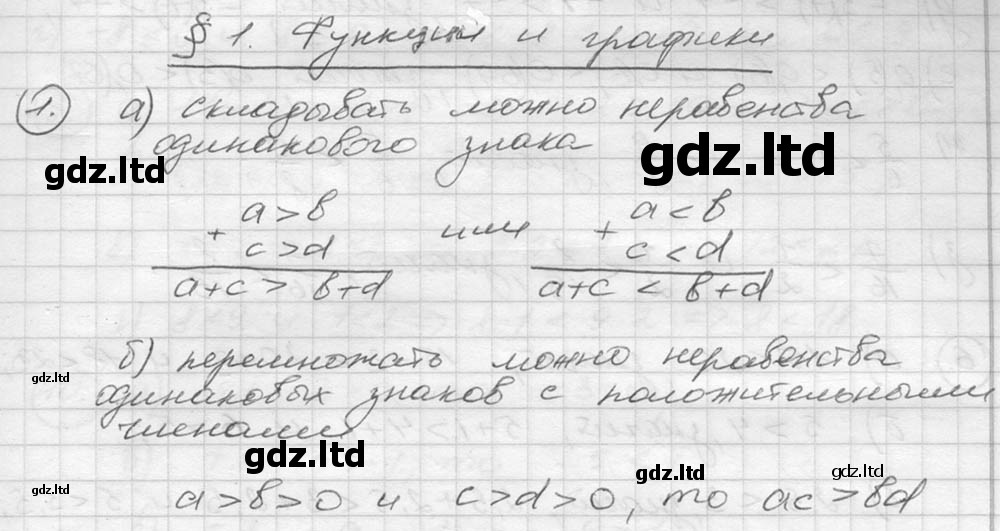 § 1. Функции и графики
1. а) складывать можно неравенства
одинакового знака
gdz.ltd
gdz.ltd
a > b или a < b
+ c > d + c < d
a+c > b+d a+c < b+d
б) перемножать можно неравенства
gdz.ltd
одинаковых знаков с положительными
членами
gdz.ltd
gdz.ltd
gdz.ltd
gdz.ltd
a > b > 0 и c > d > 0, то ac > bd